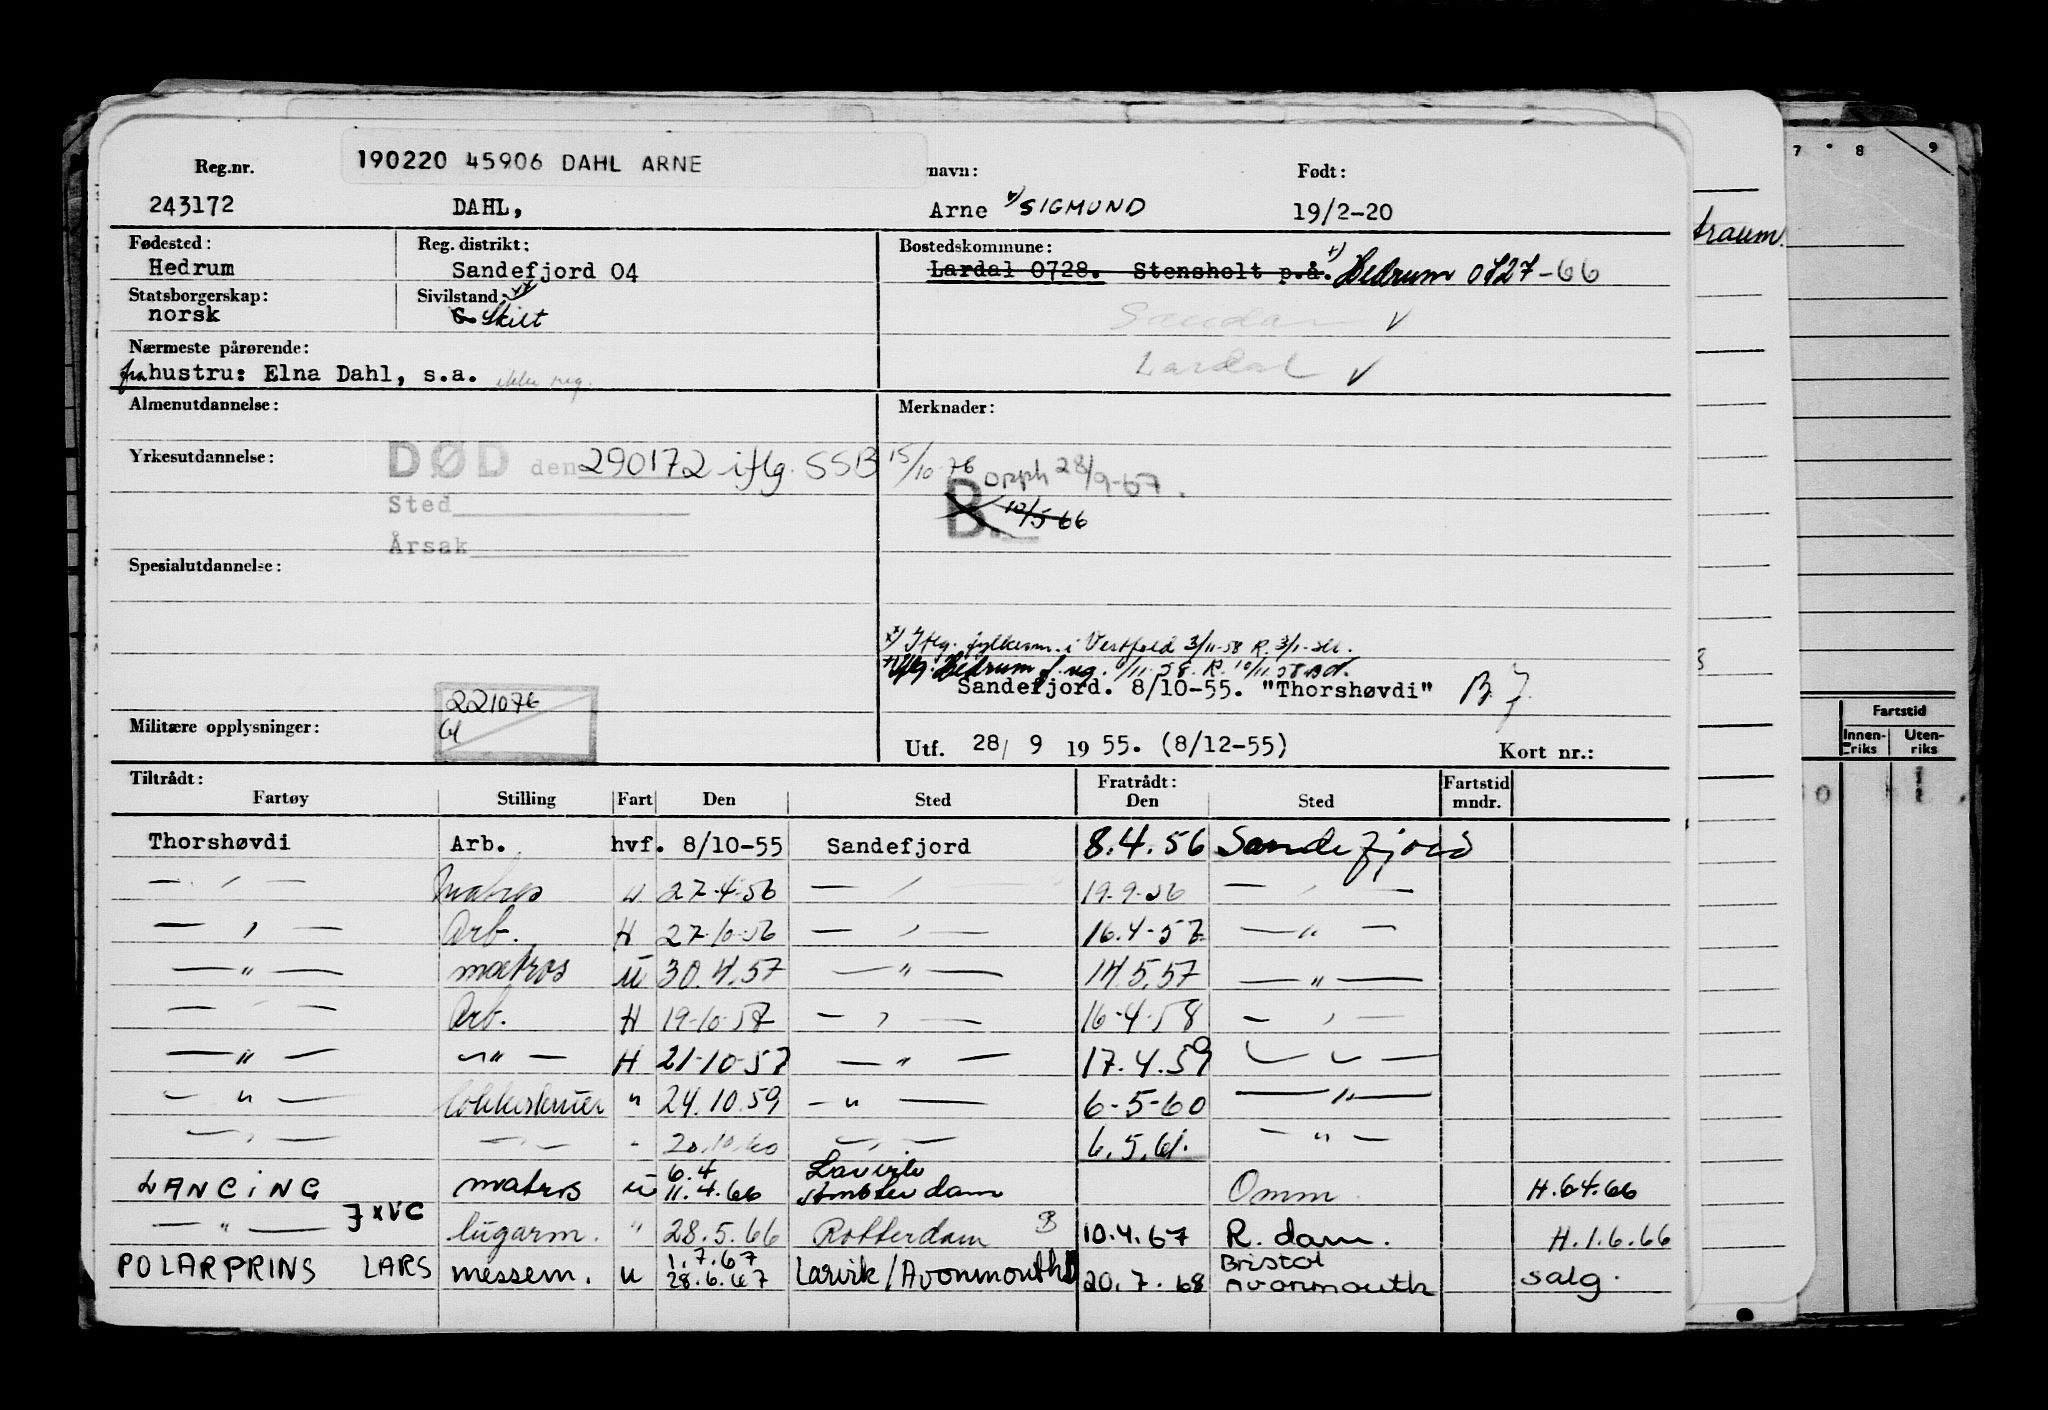 190220 45906 DAHL ARNE
Reg.nr. navn: Født:
243172 DAHL, Arne +) SIGMUND 19/2-20
Fødested: Reg. distrikt: Bostedskommune:
Hedrum Sandefjord 04 Lardal 0728. Stensholt p.å. +) Hedrum 0727-66
Statsborgerskap: Sivilstand: xx
norsk G. Skilt Sandar V
Nærmeste pårørende: Lardal V
fra hustru: Elna Dahl, s.a. ikke reg.
Almenutdannelse: Merknader:
Yrkesutdannelse: DØD den 290172 iflg. SSB 15/10-76 Opph 28/9-67.
Sted B. 10/5 66
Årsak
Spesialutdannelse:
xx) Iflg. fylkesm. i Vestfold 3/11-58 R. 3/1-
+) Iflg. Hedrum f. reg. /11-58 R. 10/11 58
Sandefjord. 8/10-55. "Thorshøvdi" B.J.
221076
Militære opplysninger:
Utf. 28/ 9 1955. (8/12-55) Kort nr.:
Tiltrådt: Fratrådt: Fartstid
Fartøy Stilling Fart Den Sted Den Sted mndr.
Thorshøvdi Arb. hvf. 8/10-55 Sandefjord 8.4.56 Sandefjord
— " — Matros u 27-4-56 — " — 19-9-56 — " —
— " — Arb. H 27-10-56 — " — 16.4-57 — " —
— " — matros u 30.4.57 — " — 14.5.57 — " —
— " — Arb. H 19-10-57 — " — 16-4-58 — " —
— " — — " — H 21-10-57 — " — 17.4.59 — " —
— " — " 24.10.59 — " — 6-5-60 — " —
— " — — " — " 20.10.60 — " — 6.5.61. — " —
LANCING matros u 6.4 11.4.66 Larvik Amsterdam Omm H.6.4.66
— " — JXVC lugarm. " 28.5.66 Rotterdam B 10.4.67 R.dam. H.1.6.66
POLARPRINS LARS messem. u 1.7.67 28.6.67 Larvik/Avonmouth 20.7.68 Bristol Avonmouth salg.
traum.
7 8 9
Fartstid
Innen-riks Uten-riks